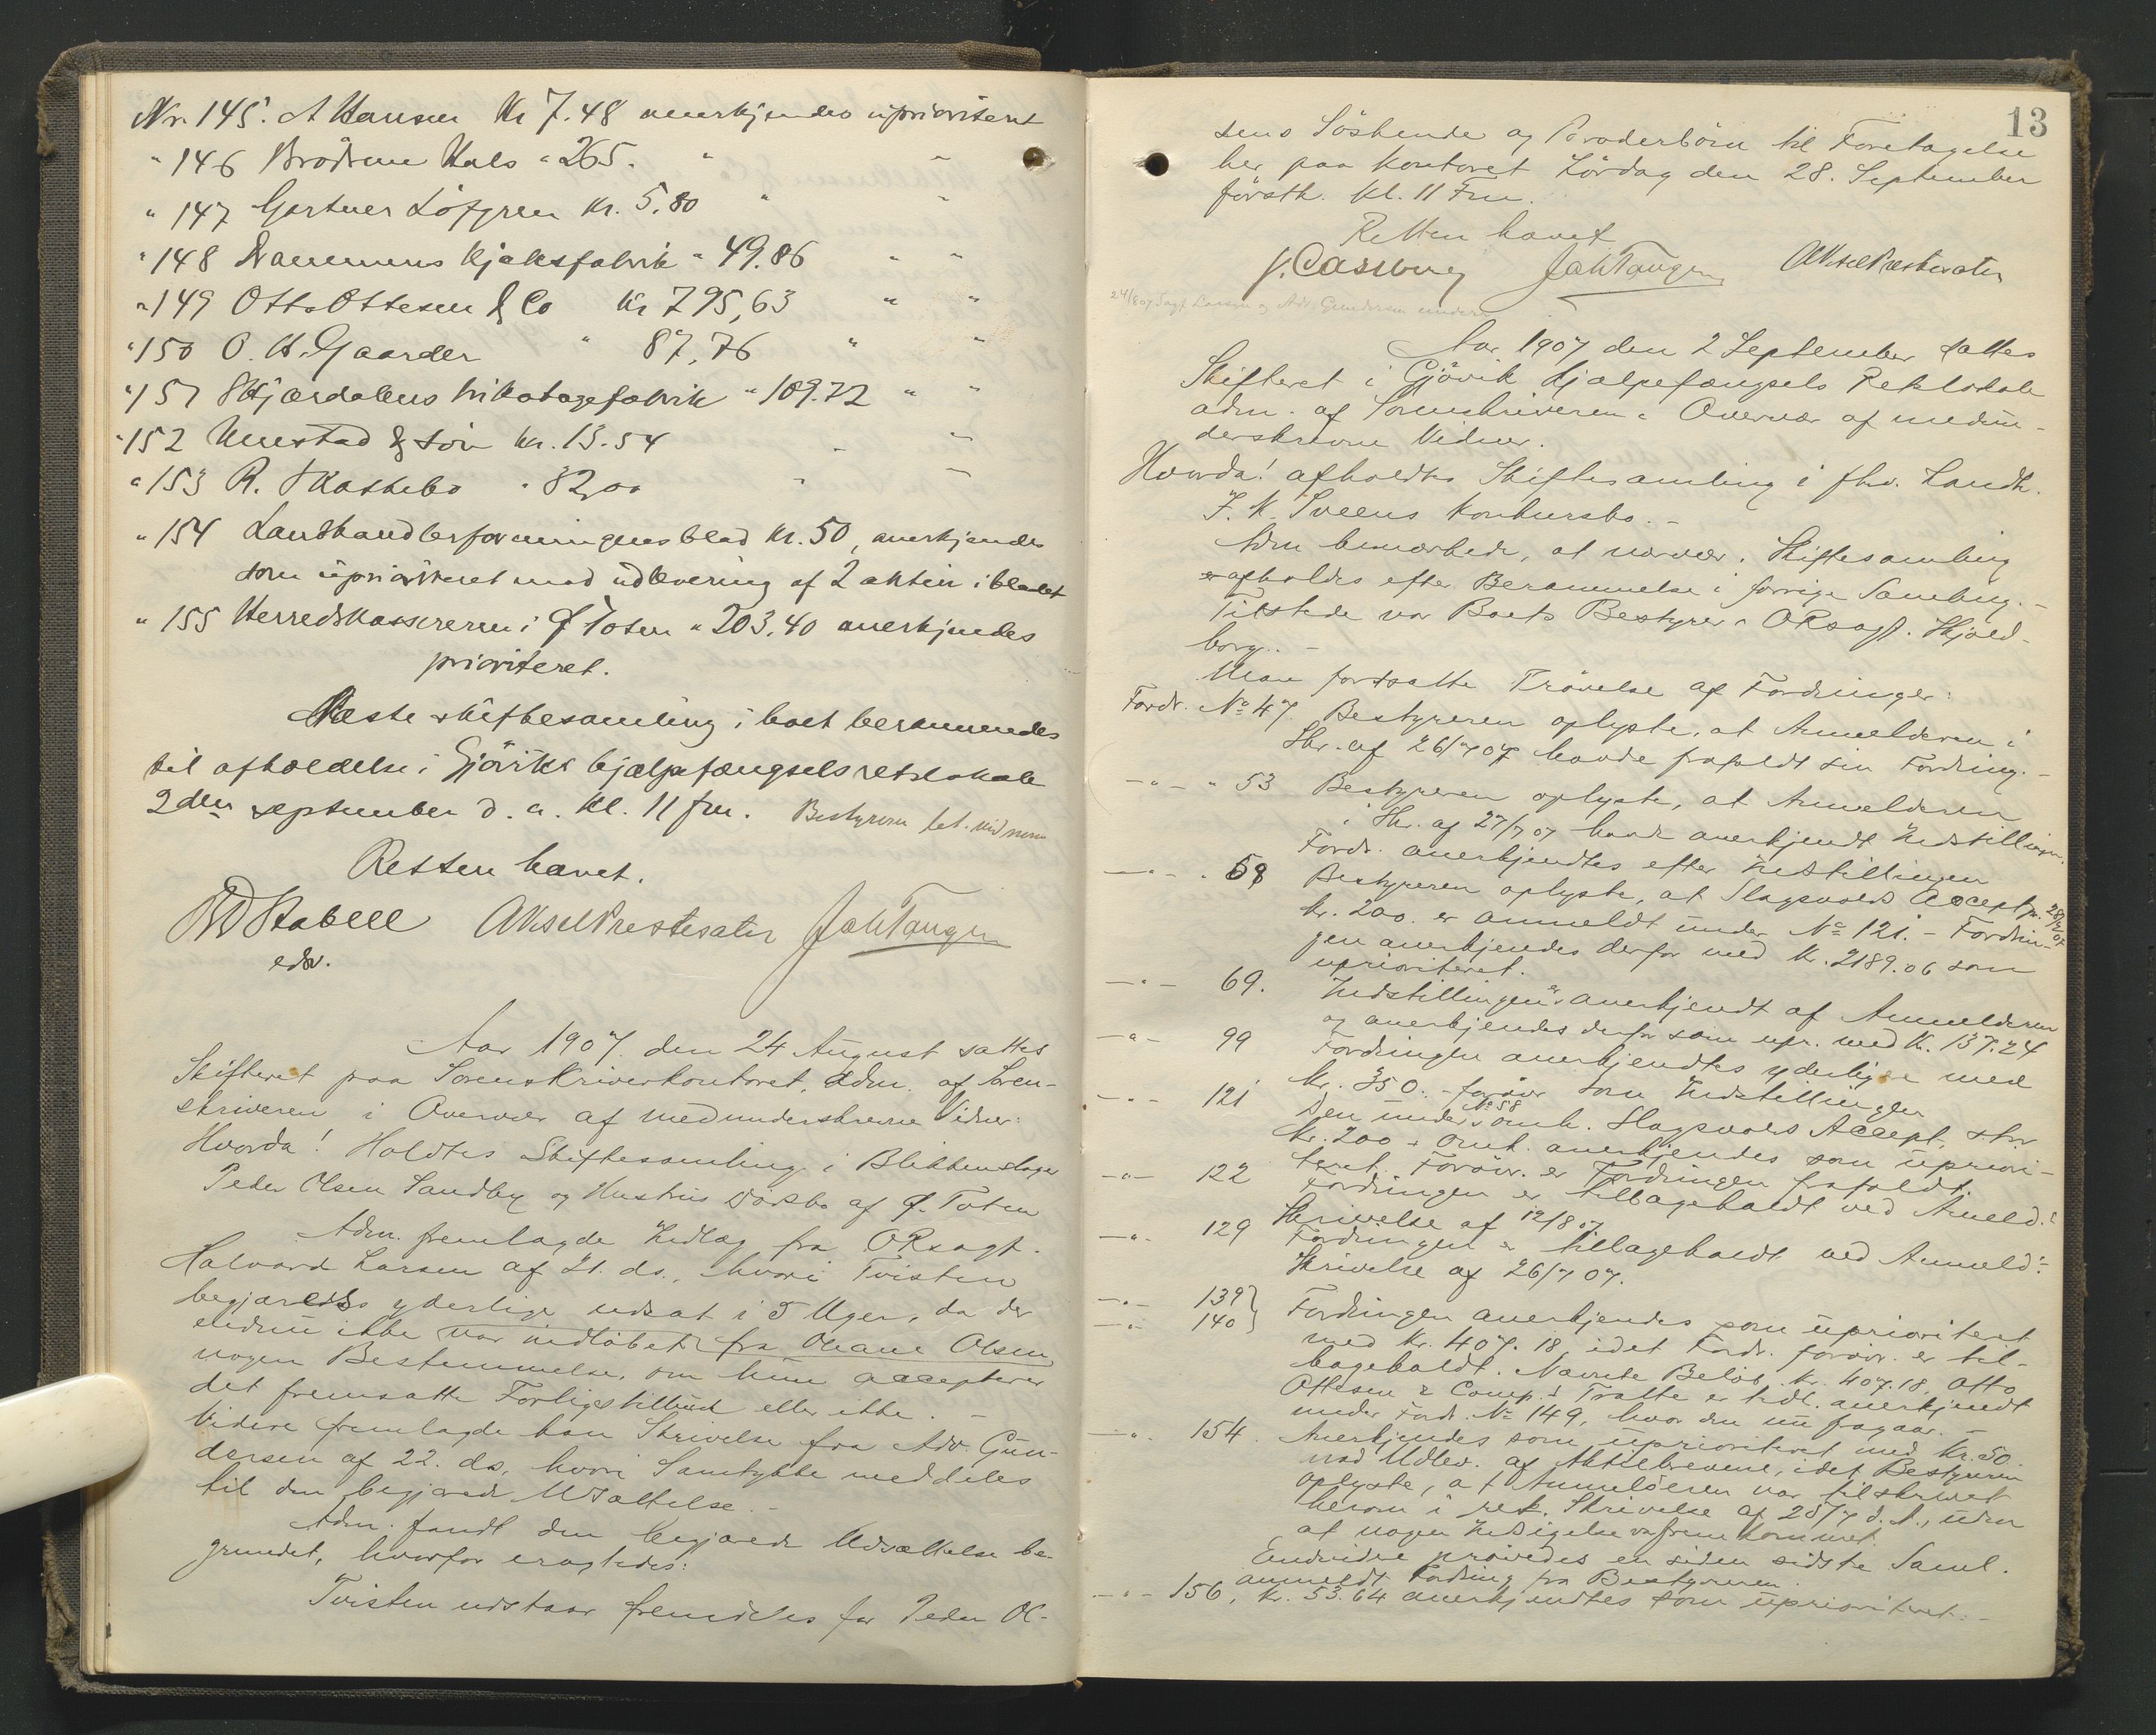 Nr. 145. A Hansen Kr 7.48 anerkjendes uprioriteret
" 146 Brödrene Hals " 265. " "
" 147 Gartner Löfgren Kr. 5,80 " "
" 148 Drammens Kjeksfabrik " 49.86 " "
" 149 Otto Ottesen & Co Kr 795,63 " "
" 150 O. H. Gaarder " 87,76 " "
" 151 Skjærdalens trikotagefabrik " 109.72 " "
" 152 Unestad & Sön Kr. 13.54 " "
" 153 R. Skattebo " 82,00 " "
" 154 Landhandlerforeningens blad Kr. 50, anerkjendes
som uprioriteret mod udlevering af 2 aktier i bladet
" 155 Herredskassereren i Ø Toten " 203,40 anerkjendes
prioriteret.
Næste skiftesamling i boet berammedes
til afholdelse i Gjöviks hjælpefængsels retslokale
2den september d. a. kl. 11 fm. Bestyreren
Retten hævet.
Stabell Aksel Prestesæter Joh Tangen
edsv.
Aar 1907 den 24 August sattes
Skifteret paa Sorenskriverkontoret, adm. af Soren-
skriveren i Overvær af medunderskrevne Vidner:
Hvorda! Holdtes Skiftesamling i Blikkenslager
Peder Olsen Sandby og Hustrus Dödsbo af Ø. Toten
Adm. fremlagde Indlæg fra ORsagf.
Halvard Larsen af 21. ds., hvori Tvisten
begjæredes yderlige udsat i 5 Uger, da der
endnu ikke var indløbet fra Oleane Olsen
nogen Bestemmelse, om hun accepterer
det fremsatte Forligstilbud eller ikke. –
Videre fremlagde han Skrivelse fra Adv. Gun-
dersen af 22. ds, hvori Samtykke meddeles
til den begjærede Udsættelse. –
Adm. fandt den begjærede Udsættelse be-
grundet, hvorfor eragtedes:
Tvisten udstaar fremdeles for Peder Ol-
13
sens Söskende og Broderbörn til Foretagelse
her paa Kontoret Lördag den 28. September
förstk. Kl. 11 Fm.
Retten hævet
J. Casberg Joh Tangen Aksel Prestesæter
24/8 07 Sagf. Larsen og Adv. Gundersen underr.
Aar 1907 den 2 September sattes
Skifteret i Gjövik Hjælpefængsels Retslokale
adm. af Sorenskriveren i Overvær af medun-
derskrevne Vidner.
Hvorda! afholdtes Skiftesamling i fhv. Landh.
J. K. Sveens Konkursbo. –
Adm bemærkede, at nærvær. Skiftesamling
afholdes efter Berammelse i forrige Samling. –
Tilstede var Boets Bestyrer, ORsagf. Skjold-
borg. –
Man fortsatte Prövelse af Fordringer:
Fordr. No 47. Bestyreren oplyste, at Anmelderen i
Skr. af 26/7 07 havde frafaldt sin Fordring. –
– " – " 53 Bestyreren oplyste, at Anmelderen
i Skr. af 27/7 07 havde anerkjendt Indstillingen.
Fordr. anerkjendtes efter Indstillingen
– " – " 58 Bestyreren oplyste, at Slagsvolds Accept pr. 28/2 07
Kr. 200. er anmeldt under No 121. – Fordrin-
gen anerkjendes derfor med Kr. 2189.06 som
uprioriteret.
– " – 69. Indstillingen er anerkjendt af Anmelderen
og anerkjendes derfor som upr. med Kr. 137.24
– " – 99 Fordringen anerkjendtes yderligere med
Kr. 350. – forövr som Indstillingen
– " – 121 Den under No 58 omh. Slagsvolds Accept, stor
Kr. 200 + Omk. anerkjendes som upriori-
teret. Forövr. er Fordringen frafaldt.
– " – 122 Fordringen er tilbagekaldt ved Anmeld.s
Skrivelse af 12/8 07
– " – 129 Fordringen er tilbagekaldt ved Anmeld.s
Skrivelse af 26/7 07.
– " – 139 } Fordringen anerkjendes som uprioriteret
– " – 140 } med Kr. 407.18, idet Fordr. forövr. er til-
bagekaldt. Nævnte Belöb Kr. 407.18, Otto
Ottesen & Comp.s Tratte er tidl. anerkjendt
under Fordr. No 149, hvor den nu fragaar. –
– " – 154. Anerkjendes som uprioriteret med Kr. 50.
mod Udlev. af Aktiebrevene, idet Bestyreren
oplyste, at Anmelderen var tilskrevet
herom i rek. Skrivelse af 25/7 d. A., uden
at nogen Indsigelse var fremkommet.
Endvidere prövedes en siden sidste Saml.
anmeldt Fordring fra Bestyreren.
– " – 156, Kr. 53.64 anerkjendtes som uprioriteret. –